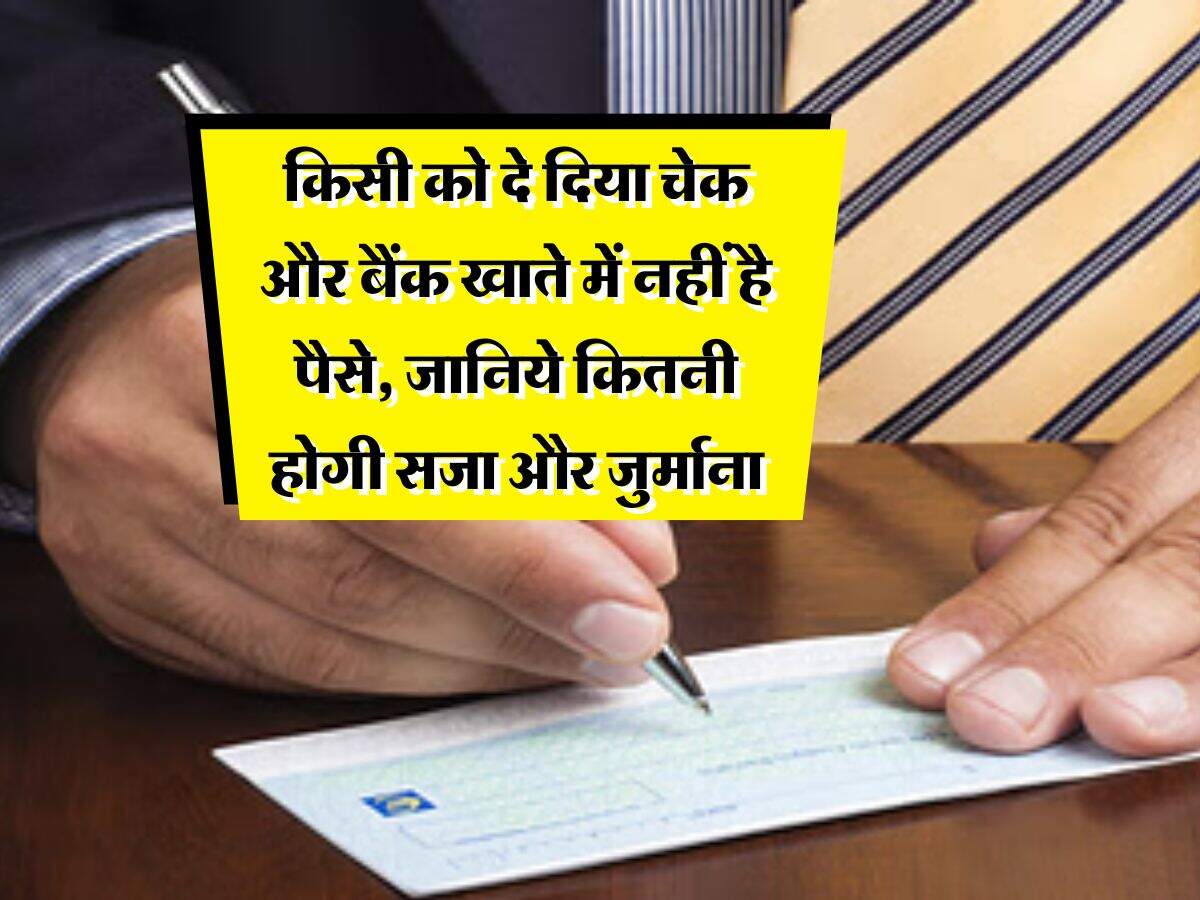 किसी को दे दिया चेक
और बैंक खाते में नहीं है
पैसे, जानिये कितनी
होगी सजा और जुर्माना